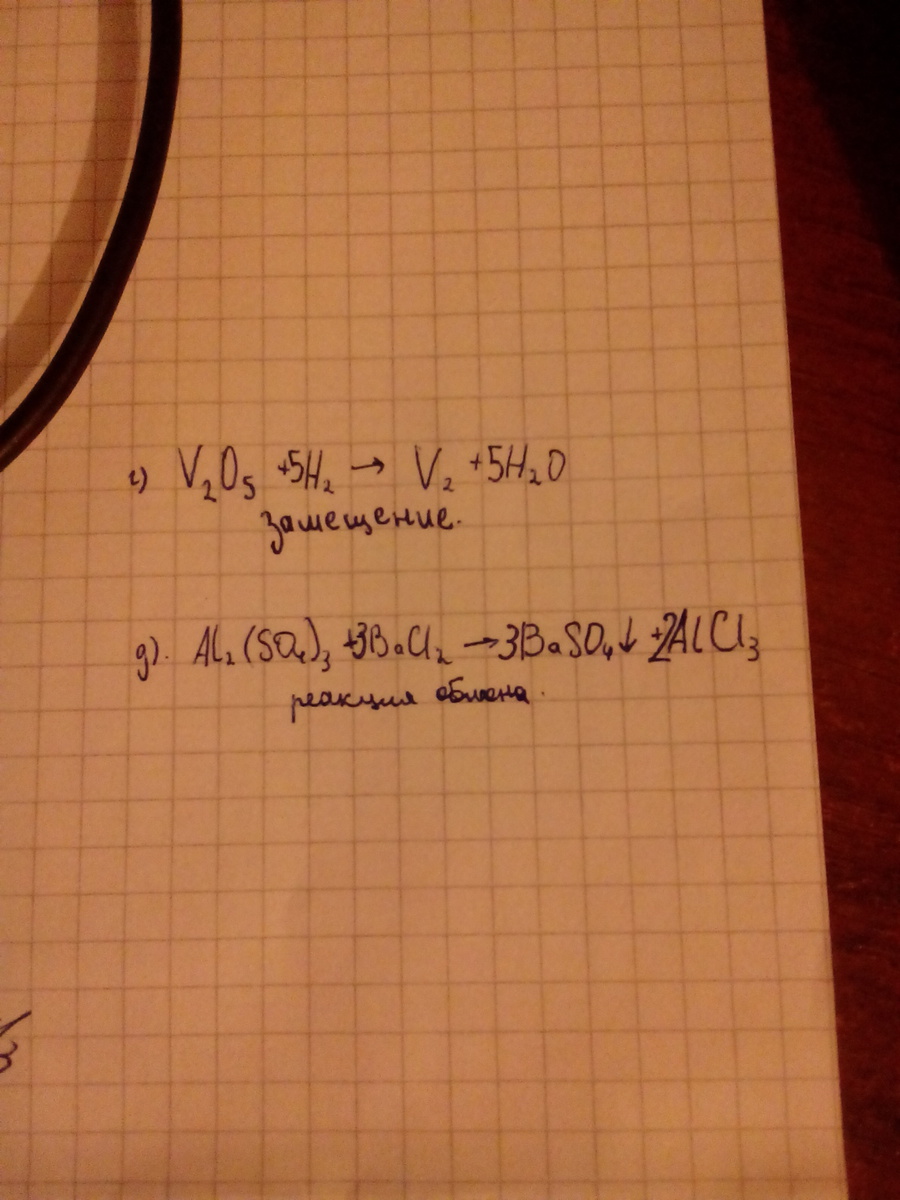 г) V₂O₅ +5H₂ → V₂ +5H₂O
замещение.
д). Al₂(SO₄)₃ +3BaCl₂ →3BaSO₄↓ +2AlCl₃
реакция обмена.